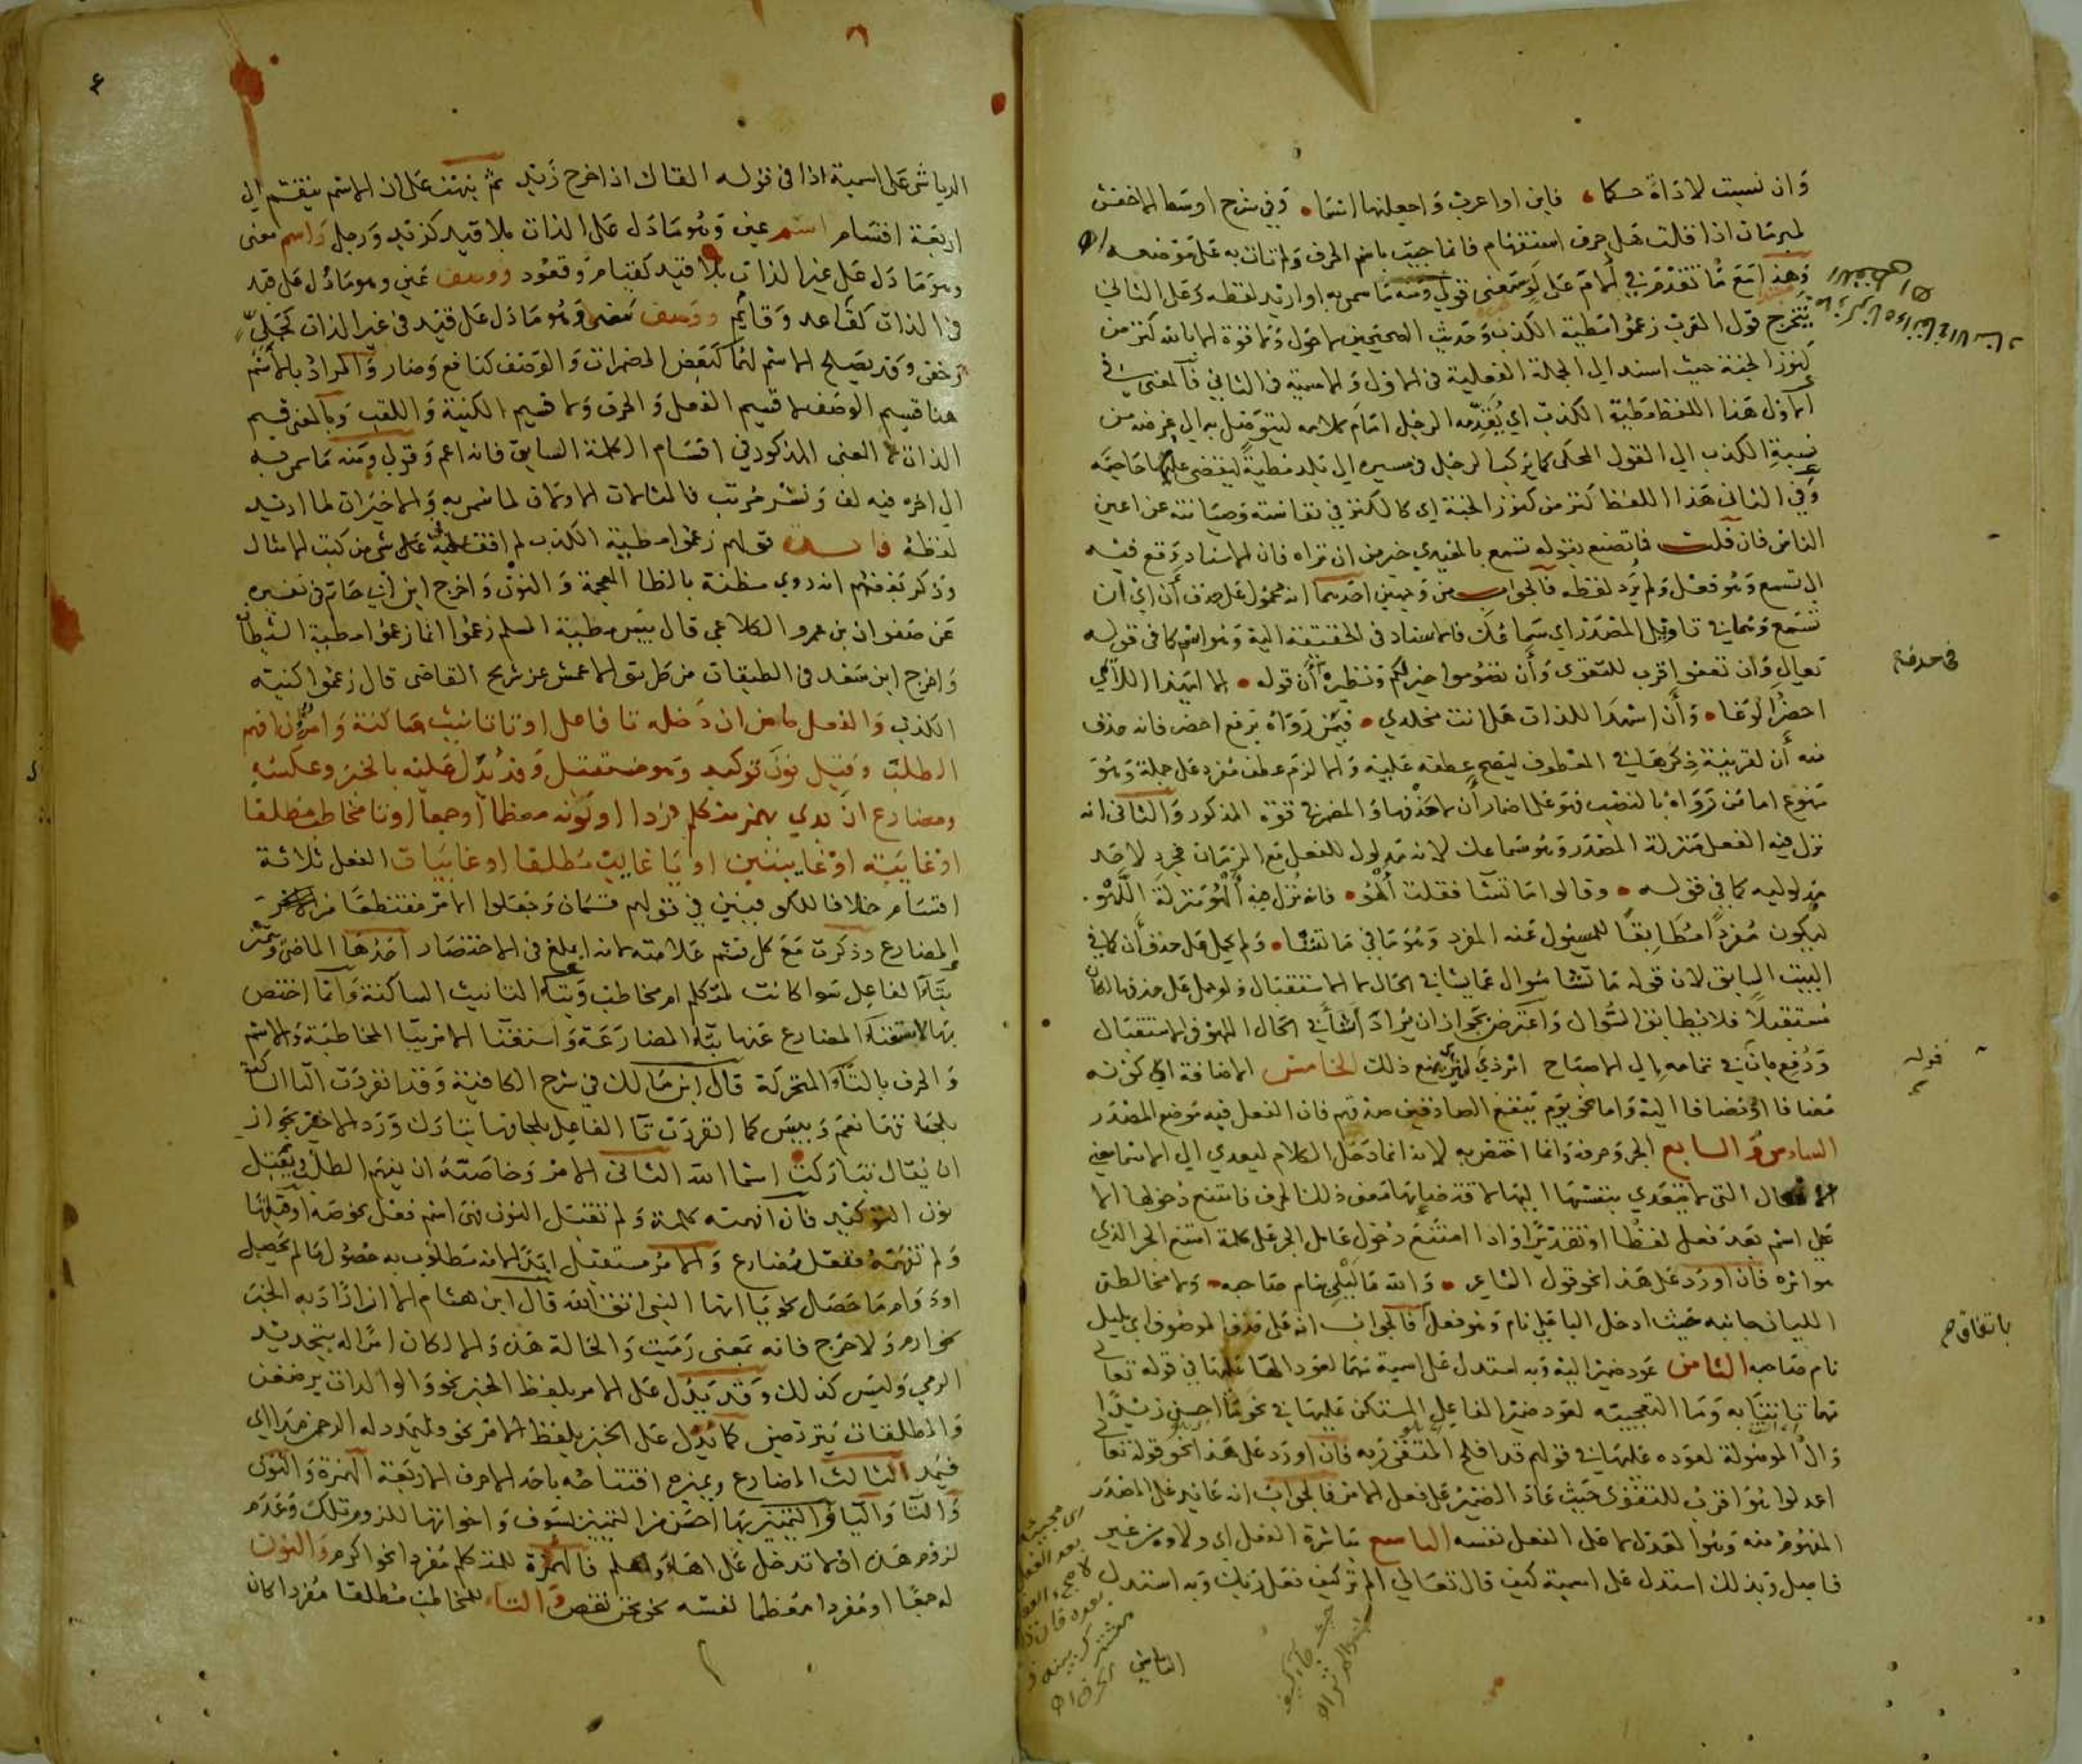 وان نسبت لاداة حكما • فابن او اعرب واجعلنها اسما • وفي شرح اوسط الاخفش
لمبرمان اذا قلت هل حرف استفهام فانما جيت باسم الحرف ولم تات به على موضعه
وهذا مع ما تقدم في لام على لو معنى قولي ومنه ما سمي به او اريد لفظه وعلى الثاني
يتخرج قول العرب زعموا مطية الكذب وحديث الصحيحين لا حول ولا قوة الا بالله كنز من
كنوز الجنة حيث اسند الي الجملة الفعلية في الاول والاسمية في الثاني فالمعنى في
الاول هذا اللفظ مطية الكذب اي يقدمه الرجل امام كلامه ليتوصل به الي غرضه من
نسبة الكذب الي القول المحكى كما يركب الرجل في مسيره الي بلد مطية ليقضي عليها حاجته
وفي الثاني هذا اللفظ كنز من كنوز الجنة اي كالكنز في نفاسته وصيانته عن اعين
الناس فان قلت فما تصنع بقوله تسمع بالمعيدي خير من ان تراه فان الاسناد وقع فيه
الي تسمع وهو فعل ولم يرد لفظه فالجواب من وجهين احدهما انه محمول على حذف أن اي ان
تسمع وهما في تاويل المصدر اي سماعك فالاسناد في الحقيقة اليه وهو اسم كما في قوله
تعالي وان تعفوا اقرب للتقوى وأن تصوموا خير لكم ونظيره أن قوله • الا ايهذا اللائمي
احضر الوغا • وأن اشهد اللذات هل انت مخلدي • فيمن رواه برفع احضر فانه حذف
منه أن لقرينة ذكرها في المعطوف ليصح عطفه عليه والا لزم عطف مفرد على جملة وهو
ممنوع اما من رواه بالنصب فهو على اضمار أن لا حذفها والمضمر في قوة المذكور والثاني انه
نزل فيه الفعل منزلة المصدر وهو سماعك لانه مدلول للفعل مع الزمان فجرد لاحد
مدلوليه كما في قوله • وقالوا ما تشا فقلت ألهو • فانه نزل فيه ألهو منزلة اللهو •
ليكون مفردا مطابقا للمسئول عنه المفرد وهو ما في ما تشا • ولم يحمل على حذف أن كما في
البيت السابق لان قوله ما تشا سوال عما يشا في الحال لا الاستقبال ولو حمل على حذفها لكان
مستقبلا فلا يطابق السوال واعترض بجواز ان يراد أشأ في الحال اللهو في الاستقبال
ودفع بان في تمامه الي الاصباح اثر ذي اثير يمنع ذلك الخامس الاضافة اي كونه
مضافا او مضافا اليه واما نحو يوم ينفع الصادقين صدقهم فان الفعل فيه موضع المصدر
السادس والسابع الجر وحرفه وانما اختص به لانه انما دخل الكلام ليعدي الي الاسما معني
الافعال التي لا تتعدي بنفسها اليها لاقتضائها معنى ذلك الحرف فامتنع دخولها الا
على اسم بعد فعل لفظا او تقديرا واذا امتنع دخول عامل الجر على كلمة امتنع الجر الذي
هو اثره فان اورد على هذا نحو قول الشاعر • والله ما ليلي بنام صاحبه • ولا مخالط
الليان جانبه حيث ادخل البا على نام وهو فعل فالجواب انه على حذف الموصوف اي بليل
نام صاحبه الثامن عود ضمير اليه وبه استدل على اسمية مهما لعود الها عليها في قوله تعالى
مهما تاتنا به وما التعجبية لعود ضمير الفاعل المستكن عليها في نحو ما احسن زيدا
وال الموصولة لعوده عليها في قولهم قد افلح المتقي ربه فان اورد على هذا نحو قوله تعالى
اعدلوا هو اقرب للتقوى حيث عاد الضمير على فعل الامر فالجواب انه عائد على المصدر
المفهوم منه وهو العدل لا على الفعل نفسه التاسع مباشرة الفعل اي ولاؤه من غير
فاصل وبذلك استدل على اسمية كيف قال تعالي الم تر كيف فعل ربك وبه استدل
في حذفه
قوله
باتفاقهم
الرياشي على اسمية اذا في قوله القائل اذا خرج زيد ثم نبهت على ان الاسم ينقسم الي
اربعة اقسام اسم عين وهو ما دل على الذات بلا قيد كزيد ورجل واسم معنى
وهو ما دل على غير الذات بلا قيد كقيام وقعود ووصف عين وهو ما دل على قيد
في الذات كقاعد وقائم ووصف معنى وهو ما دل على قيد في غير الذات كجلي
وخفي وقد يصلح الاسم لهما كبعض المضمرات والوصف كنافع وضار والمراد بالاسم
هنا قسيم الوصف لا قسيم الفعل والحرف ولا قسيم الكنية واللقب وبالمعنى قسيم
الذات لا المعنى المذكور في اقسام الكلمة السابق فانه اعم وقولي ومنه ما سمي به
الي اخره فيه لف ونشر مرتب فالمثالان الاولان لما سمي به والاخيران لما اريد
لفظه فائدة قولهم زعموا مطية الكذب لم اقف عليه في شي من كتب الامثال
وذكر بعضهم انه روي مظنة بالظا المعجمة والنون واخرج ابن أبي حاتم في تفسيره
عن صفوان بن عمرو الكلاعي قال بيس مطية المسلم زعموا انما زعموا مطية الشيطان
واخرج ابن سعد في الطبقات من طريق الاعمش عن شريح القاضي قال زعموا كنية
الكذب والفعل ماض ان دخله تا فاعل او تا تانيث ساكنة وامر ان افهم
الطلب وقبل نون توكيد وهو مستقبل وقد يدل عليه بالخبر وعكسه
ومضارع ان بدي بهمز متكلم فردا او نونه معظما او جمعا او تا مخاطب مطلقا
او غايبة او غايبتين او يا غايب مطلقا او غايبات الفعل ثلاثة
اقسام خلافا للكوفيين في قولهم قسمان وجعلوا الامر مقتطعا من
المضارع وذكرت مع كل قسم علامته لانه ابلغ في الاختصار احدها الماضي ويتميز
بتاء الفاعل سوا كانت لمتكلم ام مخاطب وبتاء التانيث الساكنة وانما اختص
بها لاستغناء المضارع عنها بتاء المضارعة واستغنا الامر بيا المخاطبة والاسم
والحرف بالتاء المتحركة قال ابن مالك في شرح الكافية وقد انفردت التا الساكنة
بلحاقها نعم وبيس كما انفردت تا الفاعل بلحاقها تبارك ورد الاخير بجواز
ان يقال تباركت اسما الله الثاني الامر وخاصته ان يفهم الطلب ويقبل
نون التوكيد فان افهمته كلمة ولم تقبل النون فهي اسم فعل نحو صه او قبلتها
ولم تفهمه ففعل مضارع والامر مستقبل ابدا لانه مطلوب به حصول ما لم يحصل
او دوام ما حصل نحو يا ايها النبي اتق الله قال ابن هشام الا ان اراد به الخبر
نحو ارم ولا حرج فانه بمعنى رميت والحالة هذه والا لكان امرا له بتجديد
الرمي وليس كذلك وقد يدل على الامر بلفظ الخبر نحو والوالدات يرضعن
والمطلقات يتربصن كما يدل على الخبر بلفظ الامر نحو فليمدد له الرحمن مدا اي
فيمد الثالث المضارع ويميزه افتتاحه باحد الاحرف الاربعة الهمزة والنون
والتا واليا والتمييز بها احسن من التمييز بسوف واخواتها للزوم تلك وعدم
لزوم هذه اذ لا تدخل على اهاء واهلم فالهمزة للمتكلم مفردا نحو اكرم والنون
له جمعا او مفردا معظما لنفسه نحو نحن نقص والتاء للمخاطب مطلقا مفردا كان